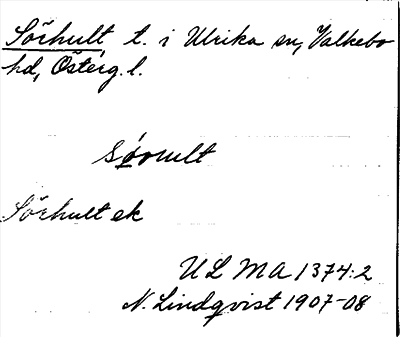 Sörhult t. i Ulrika sn, Valkebo
hd, Österg. l.
Sörhult ek
ULMA 1374:2
N. Lindqvist 1907-08